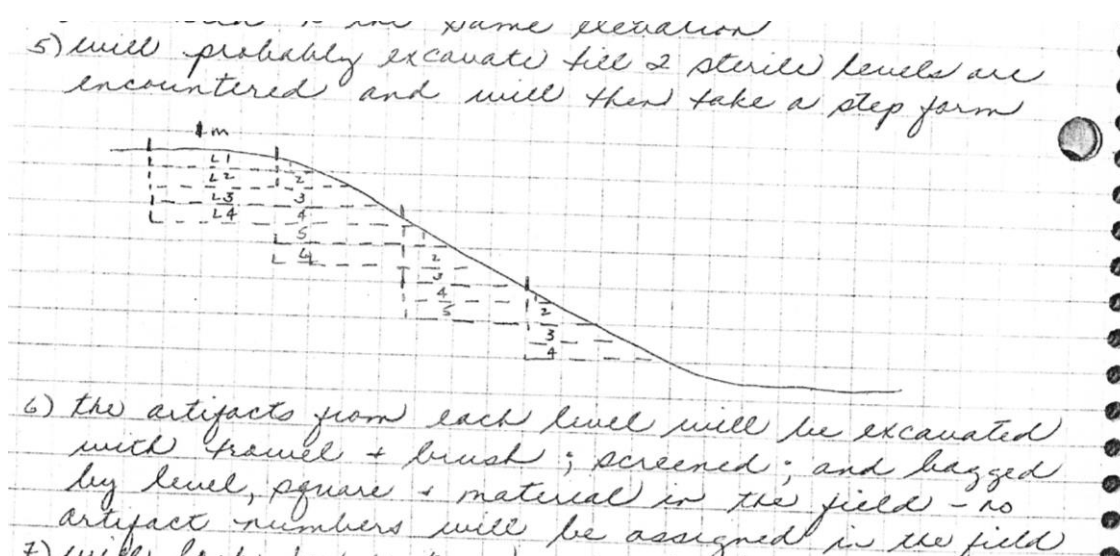 same elevation
5) will probably excavate till 2 sterile levels are
encountered and will then take a step form
1 m
L1
L2 2
L3 3
L4 4
5
6 2
3
4
5 2
3
4
6) the artifacts from each level will be excavated
with trowel + brush; screened; and bagged
by level, square + material in the field - no
artifact numbers will be assigned in the field
7) will